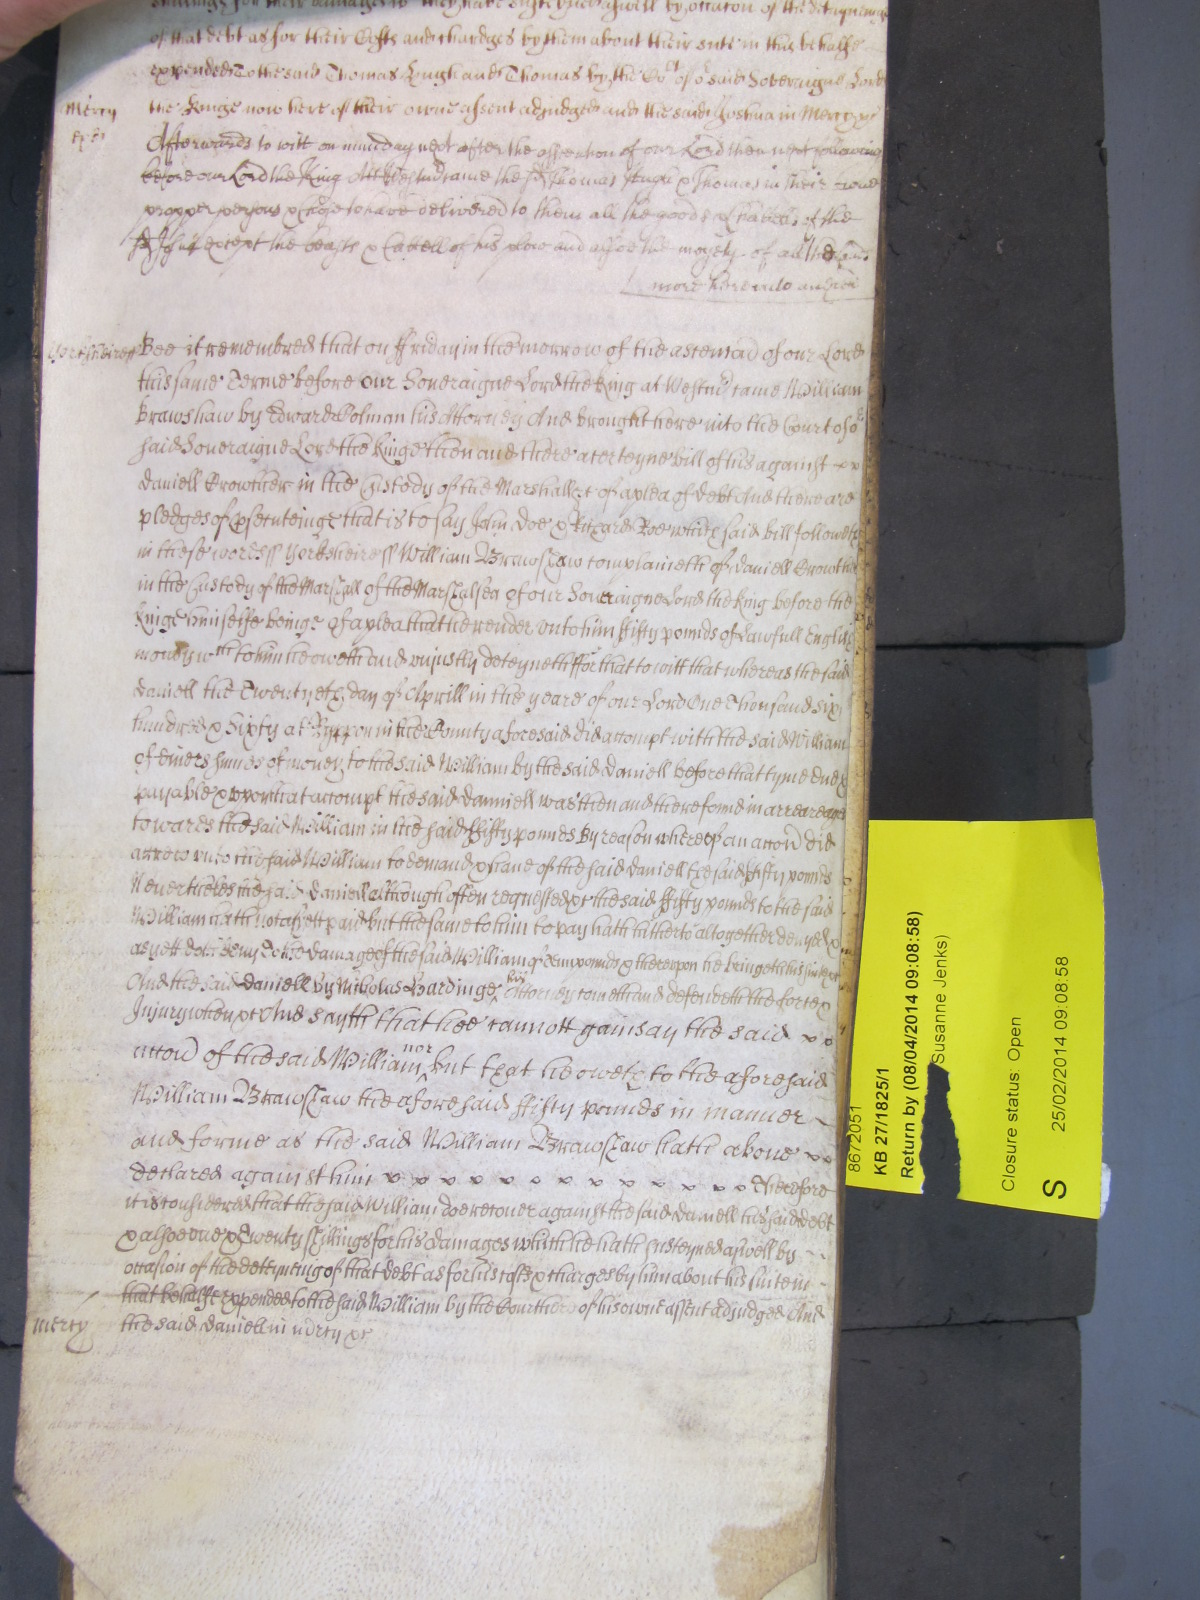 of that debt as for their Costs and chardges by them about their sute in this behalfe
expended To the said Thomas Hugh and Thomas by the Cort of or said Soveraigne Lord
Mercy
the Kinge now here of their owne assent adjudged and the said Joshua in Mercy &c
Afterwards to witt on munday next after the assention of our Lord then next following
before our Lord the King att Westmr came the sd Thomas Hugh & Thomas in their owne
propper persons & to have delivered to them all the goods & Chattells of the
except the beasts & Cattell of his plow and also the moyety of all
more hereinto
Yorksheire ss Bee it remembred that on ffriday in the morrow of the ascention of our Lord
this same Terme before our Soveraigne Lord the King at Westmr came William
Brawshaw by Edward Colman his Attorney And brought here into the Court of or
said Soveraigne Lord the Kinge then and there a certeyne bill of his against
Daniell Crowther in the Custody of the Marshall &c of a plea of debt And there are
pledges of psecuteinge that is to say John Doe & Richard Roe which said bill followeth
in these words ss Yorksheire ss William Brawshaw complaineth of Daniell Crowther
in the Custody of the Marshall of the Marshalsea of our Soveraigne Lord the King before the
Kinge himselfe beinge of a plea that he render unto him ffifty pounds of Lawfull English
money wch to him he oweth and unjustly deteyneth ffor that to witt that whereas the said
Daniell the Twentyeth day of Aprill in the yeare of our Lord One Thousand six
hundred & Sixty at Ryppon in the County aforesaid did accompt with the said William
of divers summes of money to the said William by the said Daniell before that tyme due &
payable & upon that accompt the said Danniell was then and there found in arrearages
towards the said William in the said ffifty pounds By reason whereof an accon did
accrew unto the said William to demand & have of the said Daniell the said ffifty pounds
Neverthelesse the said Daniell although often requested &c the said ffifty pounds to the said
William hath not as yett paid but the same to him to pay hath hitherto altogether denyed &
as yett doth deny To the damage of the said William of Tenn pounds & thereupon he bringeth his suite &c
And the said Daniell by Nicholas Hardinge his Attorney cometh and defendeth the force &
Injury when &c And sayth that hee cannott gainsay the said
accon of the said William nor but that he oweth to the aforesaid
William Brawshaw the aforesaid ffifty pounds in manner
and forme as the said William Brawshaw hath above
declared against him Therefore
it is considered that the said William doe recover against the said Daniell his said debt
& alsoe one & Twenty shillings for his damages which he hath susteyned aswell by
occasion of the deteyneing of that debt as for his costs & charges by him about his suite in
that behalfe expended to the said William by the Court here of his owne assent adjudged And
mercy
the said Daniell in mercy &c
867 2051
KB 27/1825/1
Return by (08/04/2014 09:08:58)
Susanne Jenks)
Closure status: Open
S
25/02/2014 09:08:58